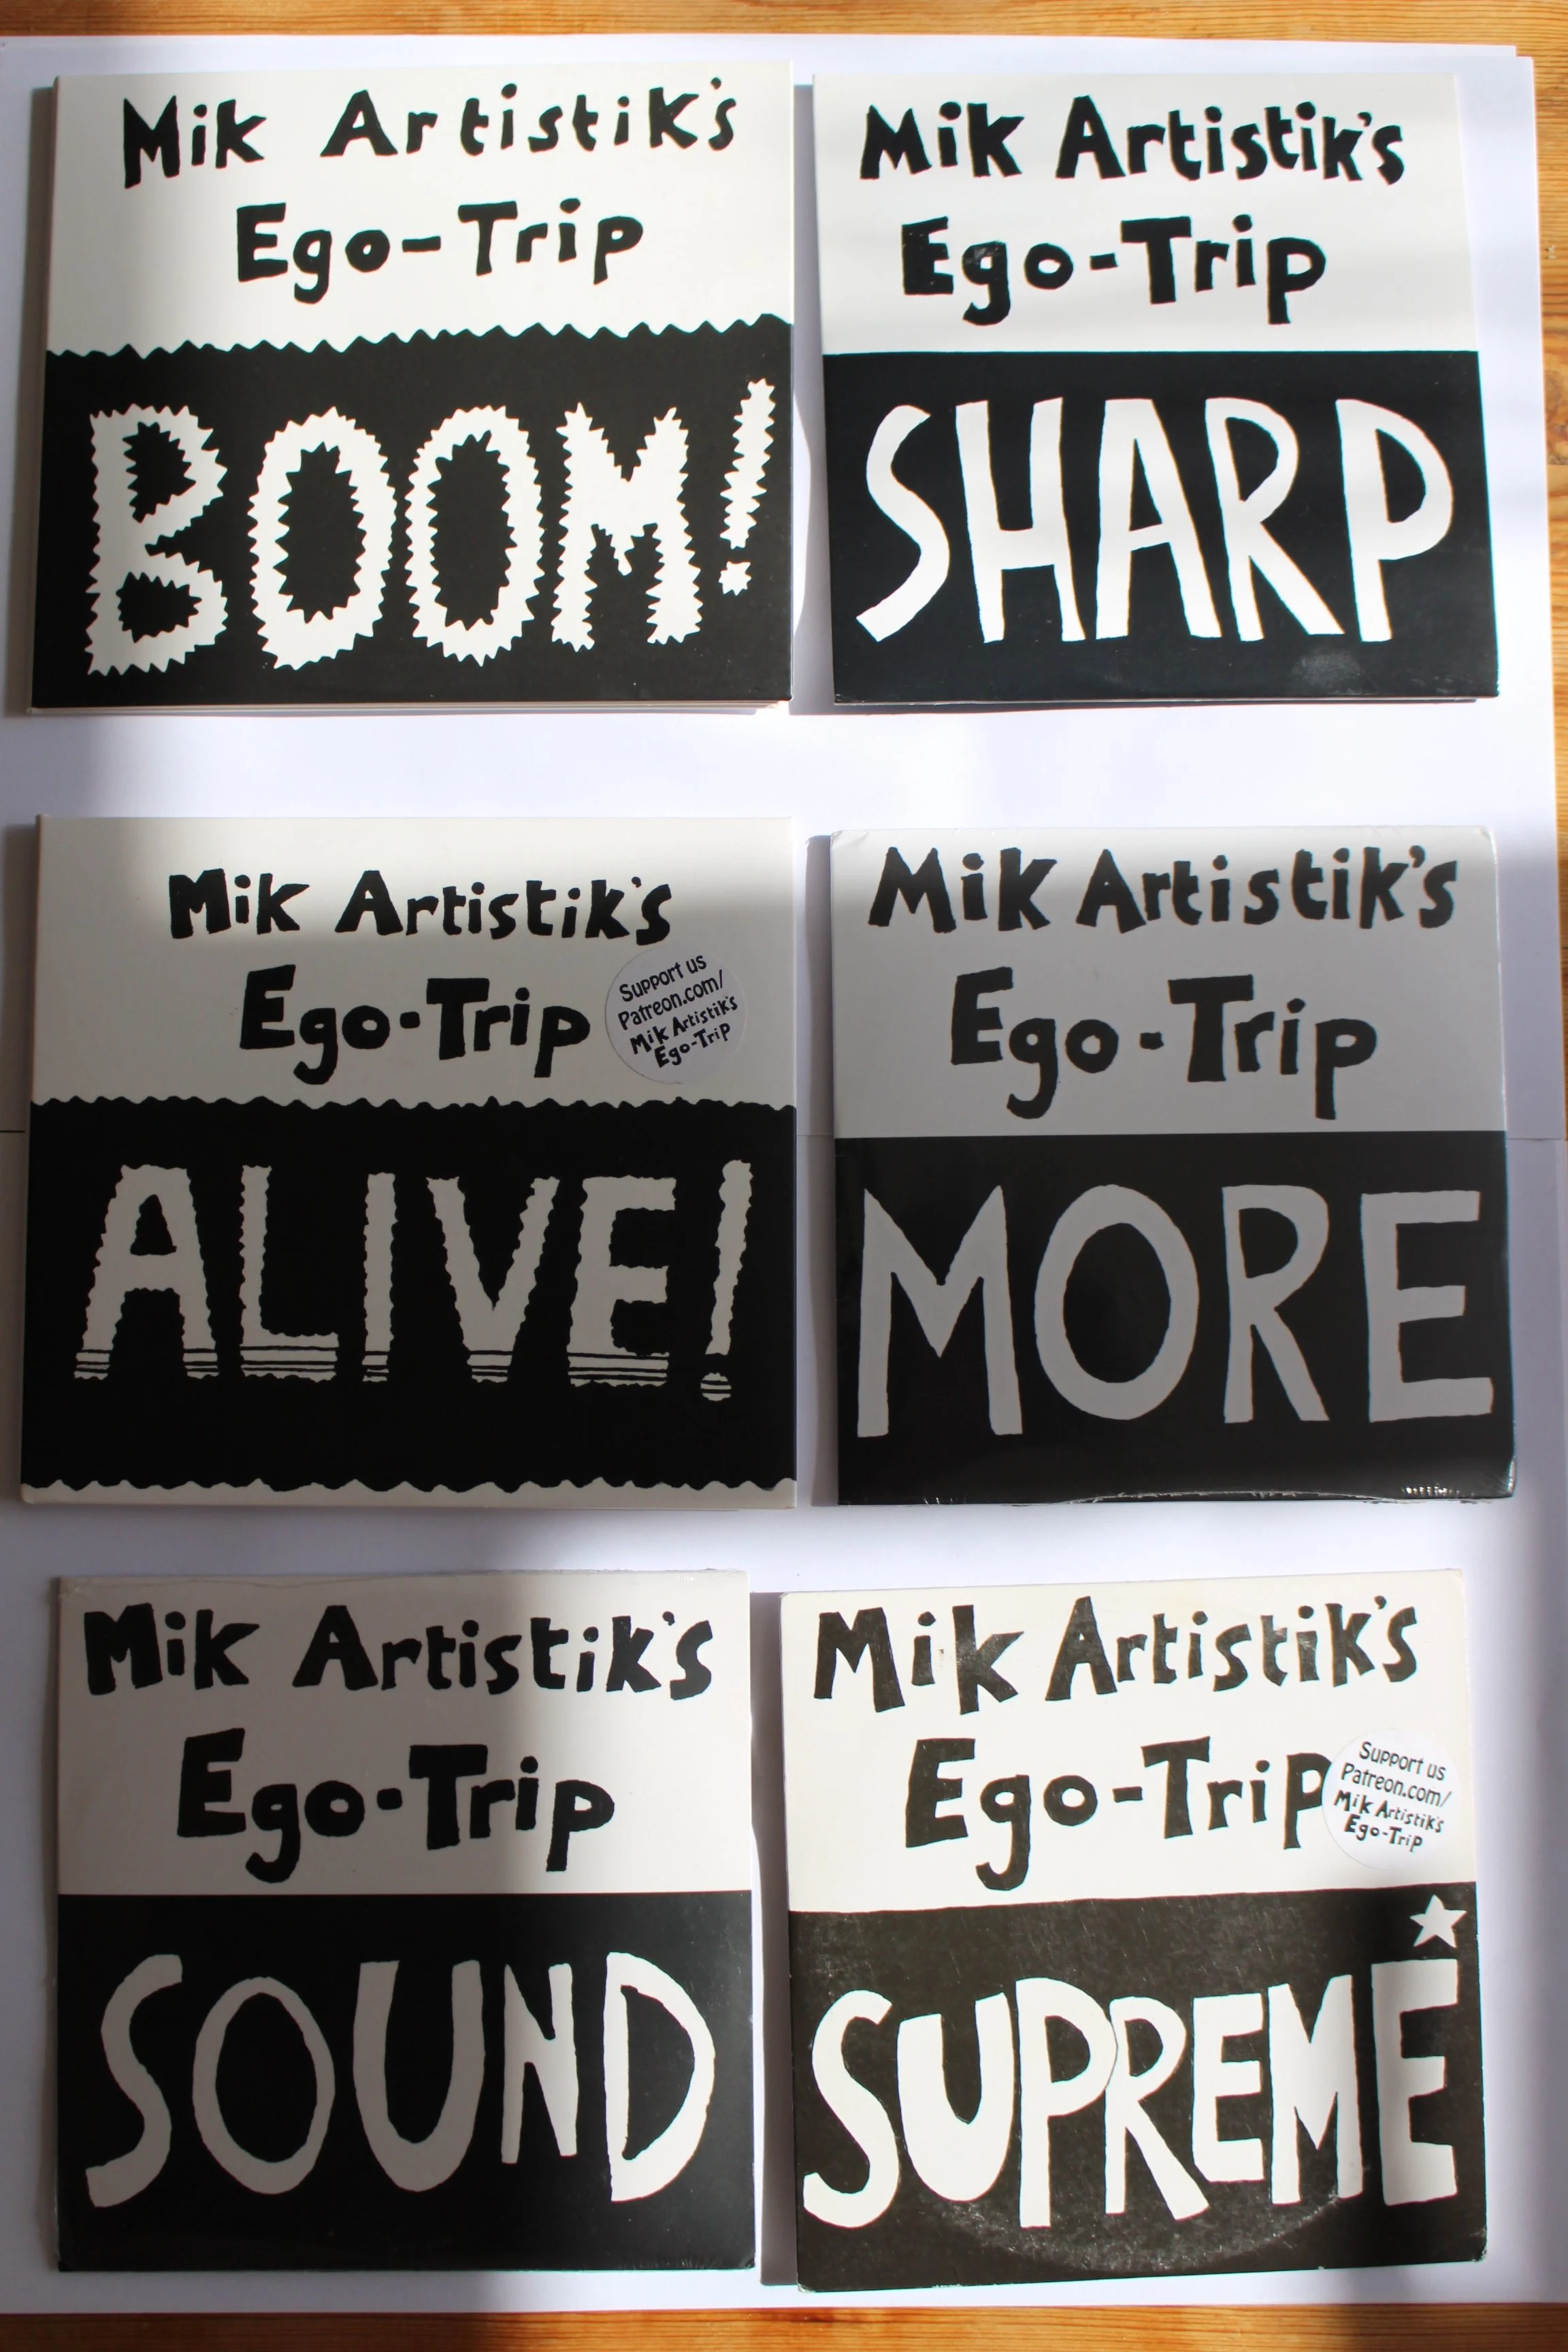 Mik Artistik's
Ego-Trip
BOOM!
Mik Artistik's
Ego-Trip
SHARP
Mik Artistik's
Ego-Trip
Support us
Patreon.com/
Mik Artistik's
Ego-Trip
ALIVE!
Mik Artistik's
Ego-Trip
MORE
Mik Artistik's
Ego-Trip
SOUND
Mik Artistik's
Ego-Trip
Support us
Patreon.com/
Mik Artistik's
Ego-Trip
SUPREME